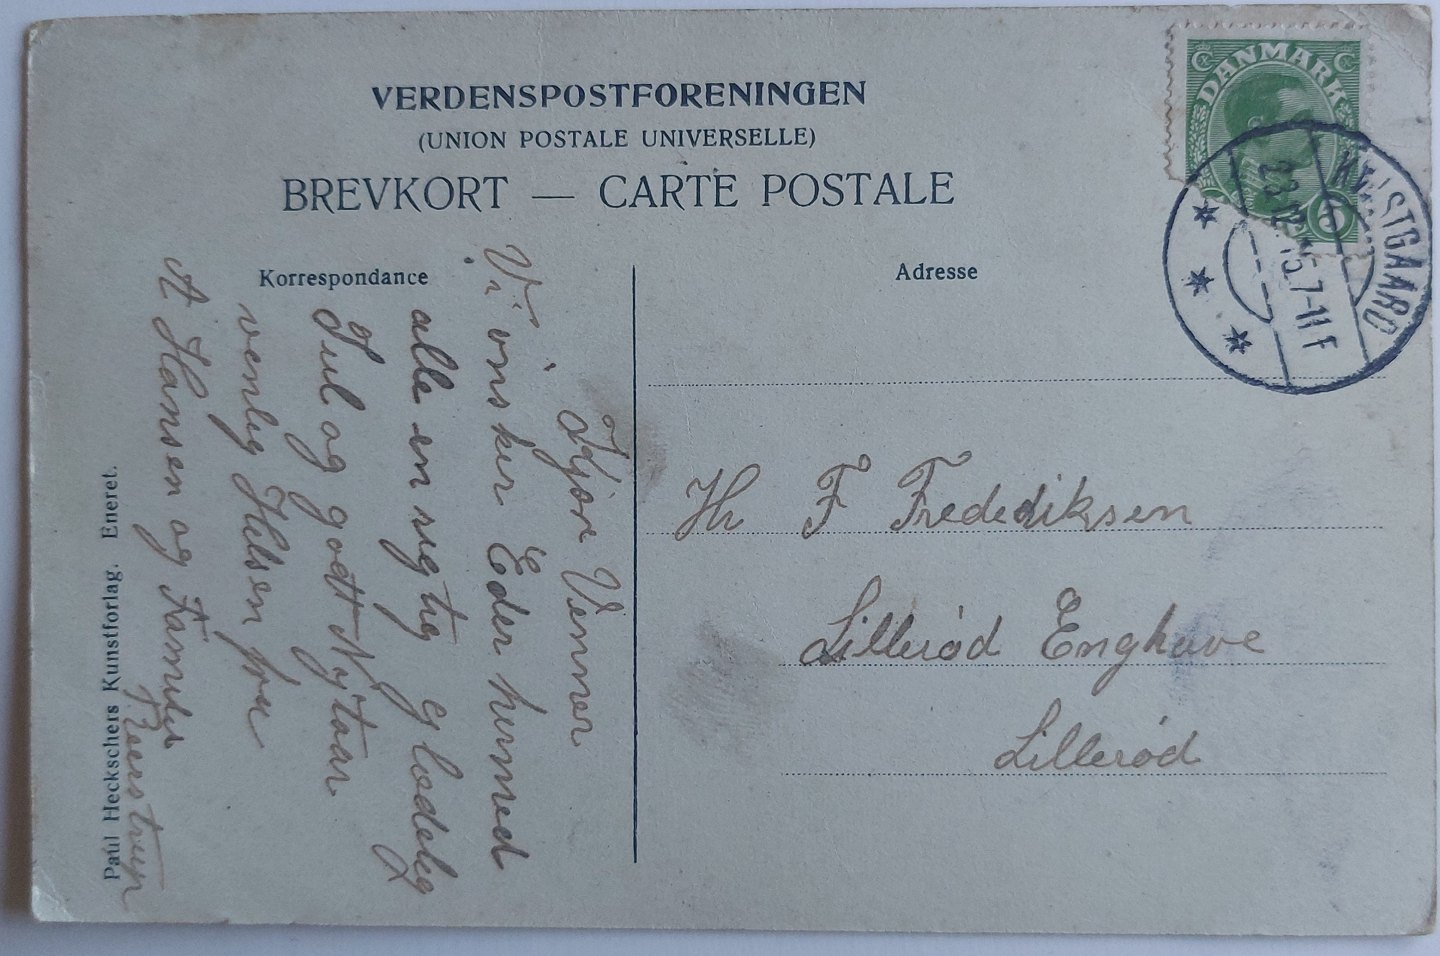 VERDENSPOSTFORENINGEN
(UNION POSTALE UNIVERSELLE)
BREVKORT — CARTE POSTALE
Korrespondance
Adresse
DANMARK
5
KVISTGAARD
23.12.15.7-11 F
Kjøre Venner
Vi ønsker Eder hermed
alle en rigtig glædelig
Jul og godt Nytaar
venlig Hilsen fra
A Hansen og Familie
Reerstrup
Hr F Frederiksen
Lillerød Enghave
Lillerød
Paul Heckschers Kunstforlag. Eneret.